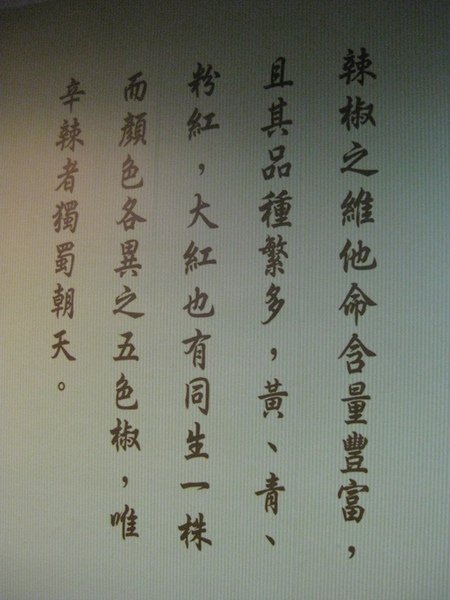 辣椒之維他命含量豐富，
且其品種繁多，黃、青、
粉紅，大紅也有同生一株
而顏色各異之五色椒，唯
辛辣者獨蜀朝天。